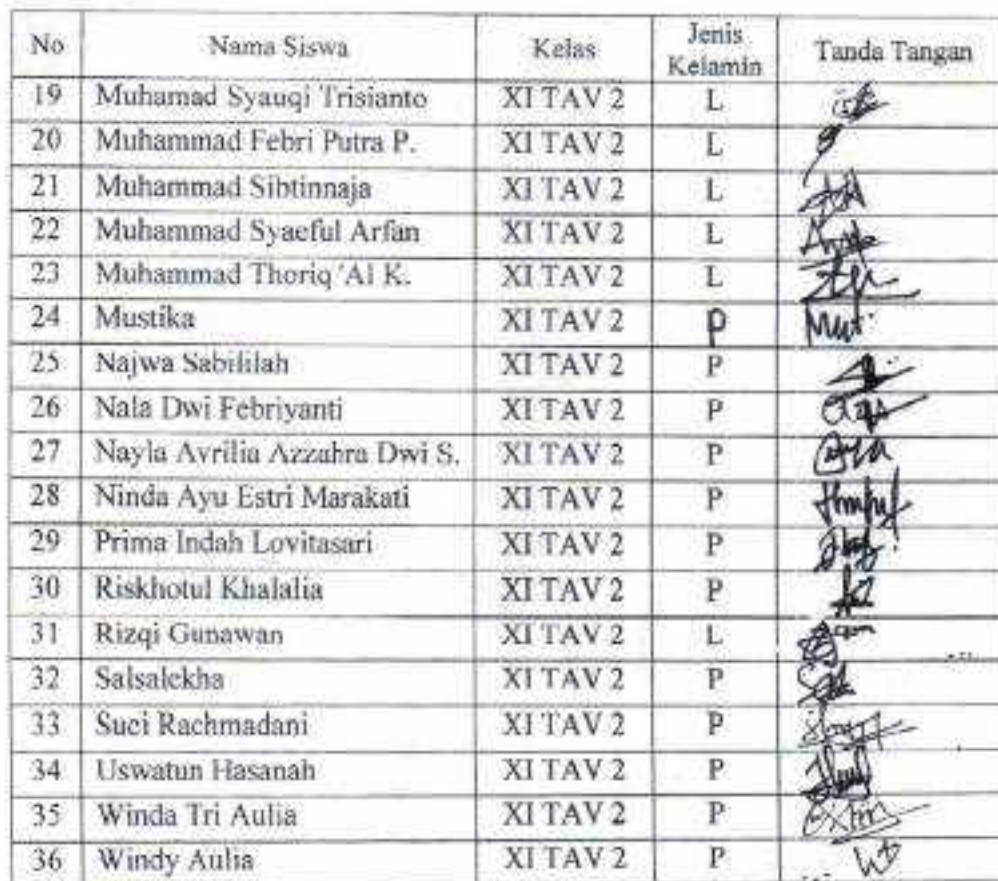 No Nama Siswa Kelas Jenis Kelamin Tanda Tangan
19 Muhamad Syauqi Trisianto XI TAV 2 L
20 Muhammad Febri Putra P. XI TAV 2 L
21 Muhammad Sibtinnaja XI TAV 2 L
22 Muhammad Syaeful Arfan XI TAV 2 L
23 Muhammad Thoriq 'Al K. XI TAV 2 L
24 Mustika XI TAV 2 P Must
25 Najwa Sabililah XI TAV 2 P
26 Nala Dwi Febriyanti XI TAV 2 P
27 Nayla Avrilia Azzahra Dwi S. XI TAV 2 P
28 Ninda Ayu Estri Marakati XI TAV 2 P
29 Prima Indah Lovitasari XI TAV 2 P
30 Riskhotul Khalalia XI TAV 2 P
31 Rizqi Gunawan XI TAV 2 L
32 Salsalekha XI TAV 2 P
33 Suci Rachmadani XI TAV 2 P
34 Uswatun Hasanah XI TAV 2 P
35 Winda Tri Aulia XI TAV 2 P
36 Windy Aulia XI TAV 2 P